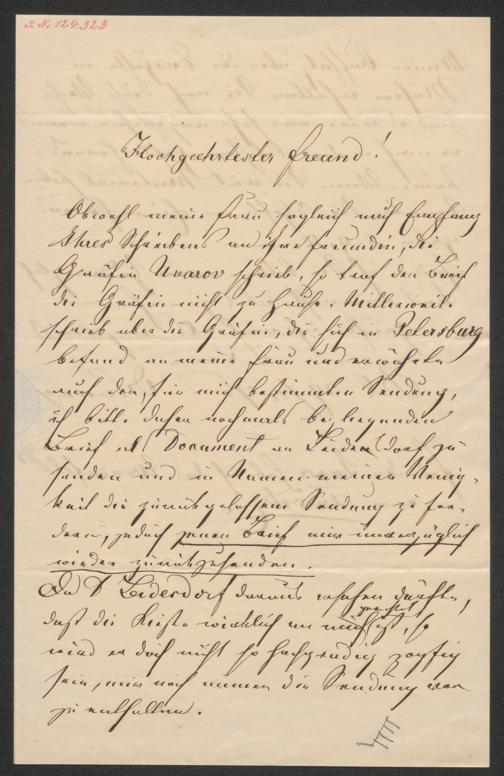 I.N. 124.323
Hochgeehrtester Freund!
Obwohl meine Frau sogleich nach Empfang
Ihres Schreibens an ihre Freundin, die
Gräfin Uvarov schrieb, so traf den Brief
die Gräfin nicht zu Hause. Mittlerweile
schrieb aber die Gräfin, die sich in Petersburg
befand an meine Frau und erwähnte
auch der, für mich bestimmten Sendung,
ich bitte daher nochmals beiliegenden
Brief als Document an Leidesdorf zu
senden und in Namen meiner Wenig-
keit die zurückgelassene Sendung zu for-
dern, jedoch jenen Brief mir unverzüglich
wieder zurückzusenden.
Da S Leidersdorf daraus ersehen dürfte,
daß die Kiste wirklich an mich gerichtet ist, so
wird er doch nicht so hochgradig zopfig
sein, mir noch immer die Sendung vor
zu enthalten.